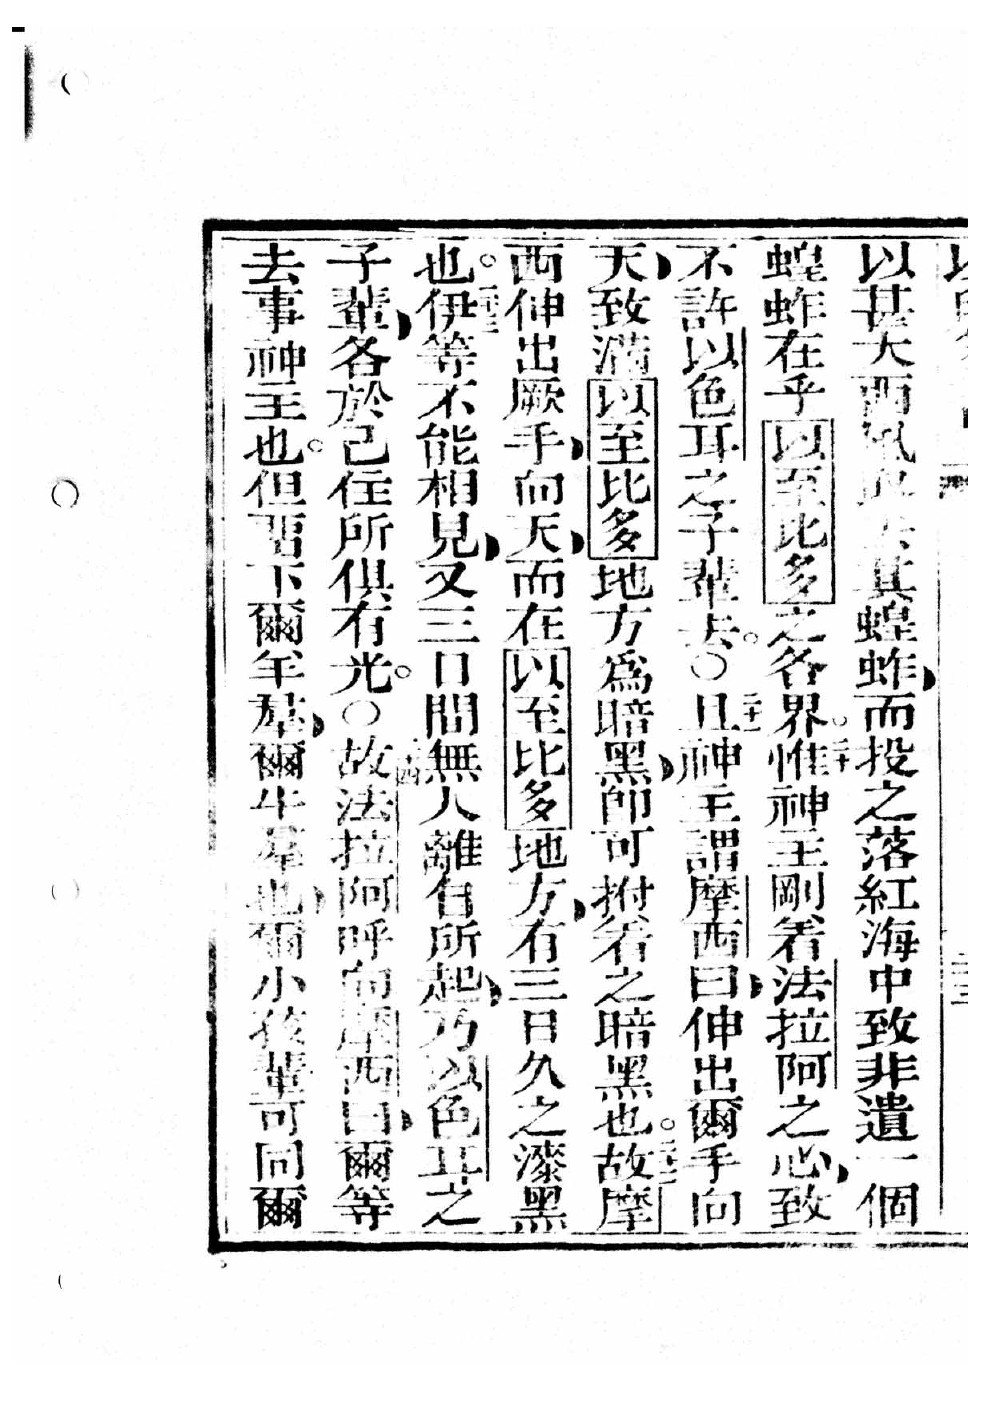 以甚大西風與去其蝗蚱而投之落紅海中致非遺一個
蝗蚱在乎以至比多之各界。二十惟神主剛着法拉阿之心致
不許以色耳之子輩去。○二十一且神主謂摩西曰伸出爾手向
天致滿以至比多地方爲暗黑卽可拊着之暗黑也。二十二故摩
西伸出厥手向天而在以至比多地方有三日久之漆黑
也。二十三伊等不能相見又三日間無人離自所起乃以色耳之
子輩各於己住所俱有光。○二十四故法拉阿呼向摩西曰爾等
去事神主也。但留下爾羊羣爾牛羣也爾小孩輩可同爾